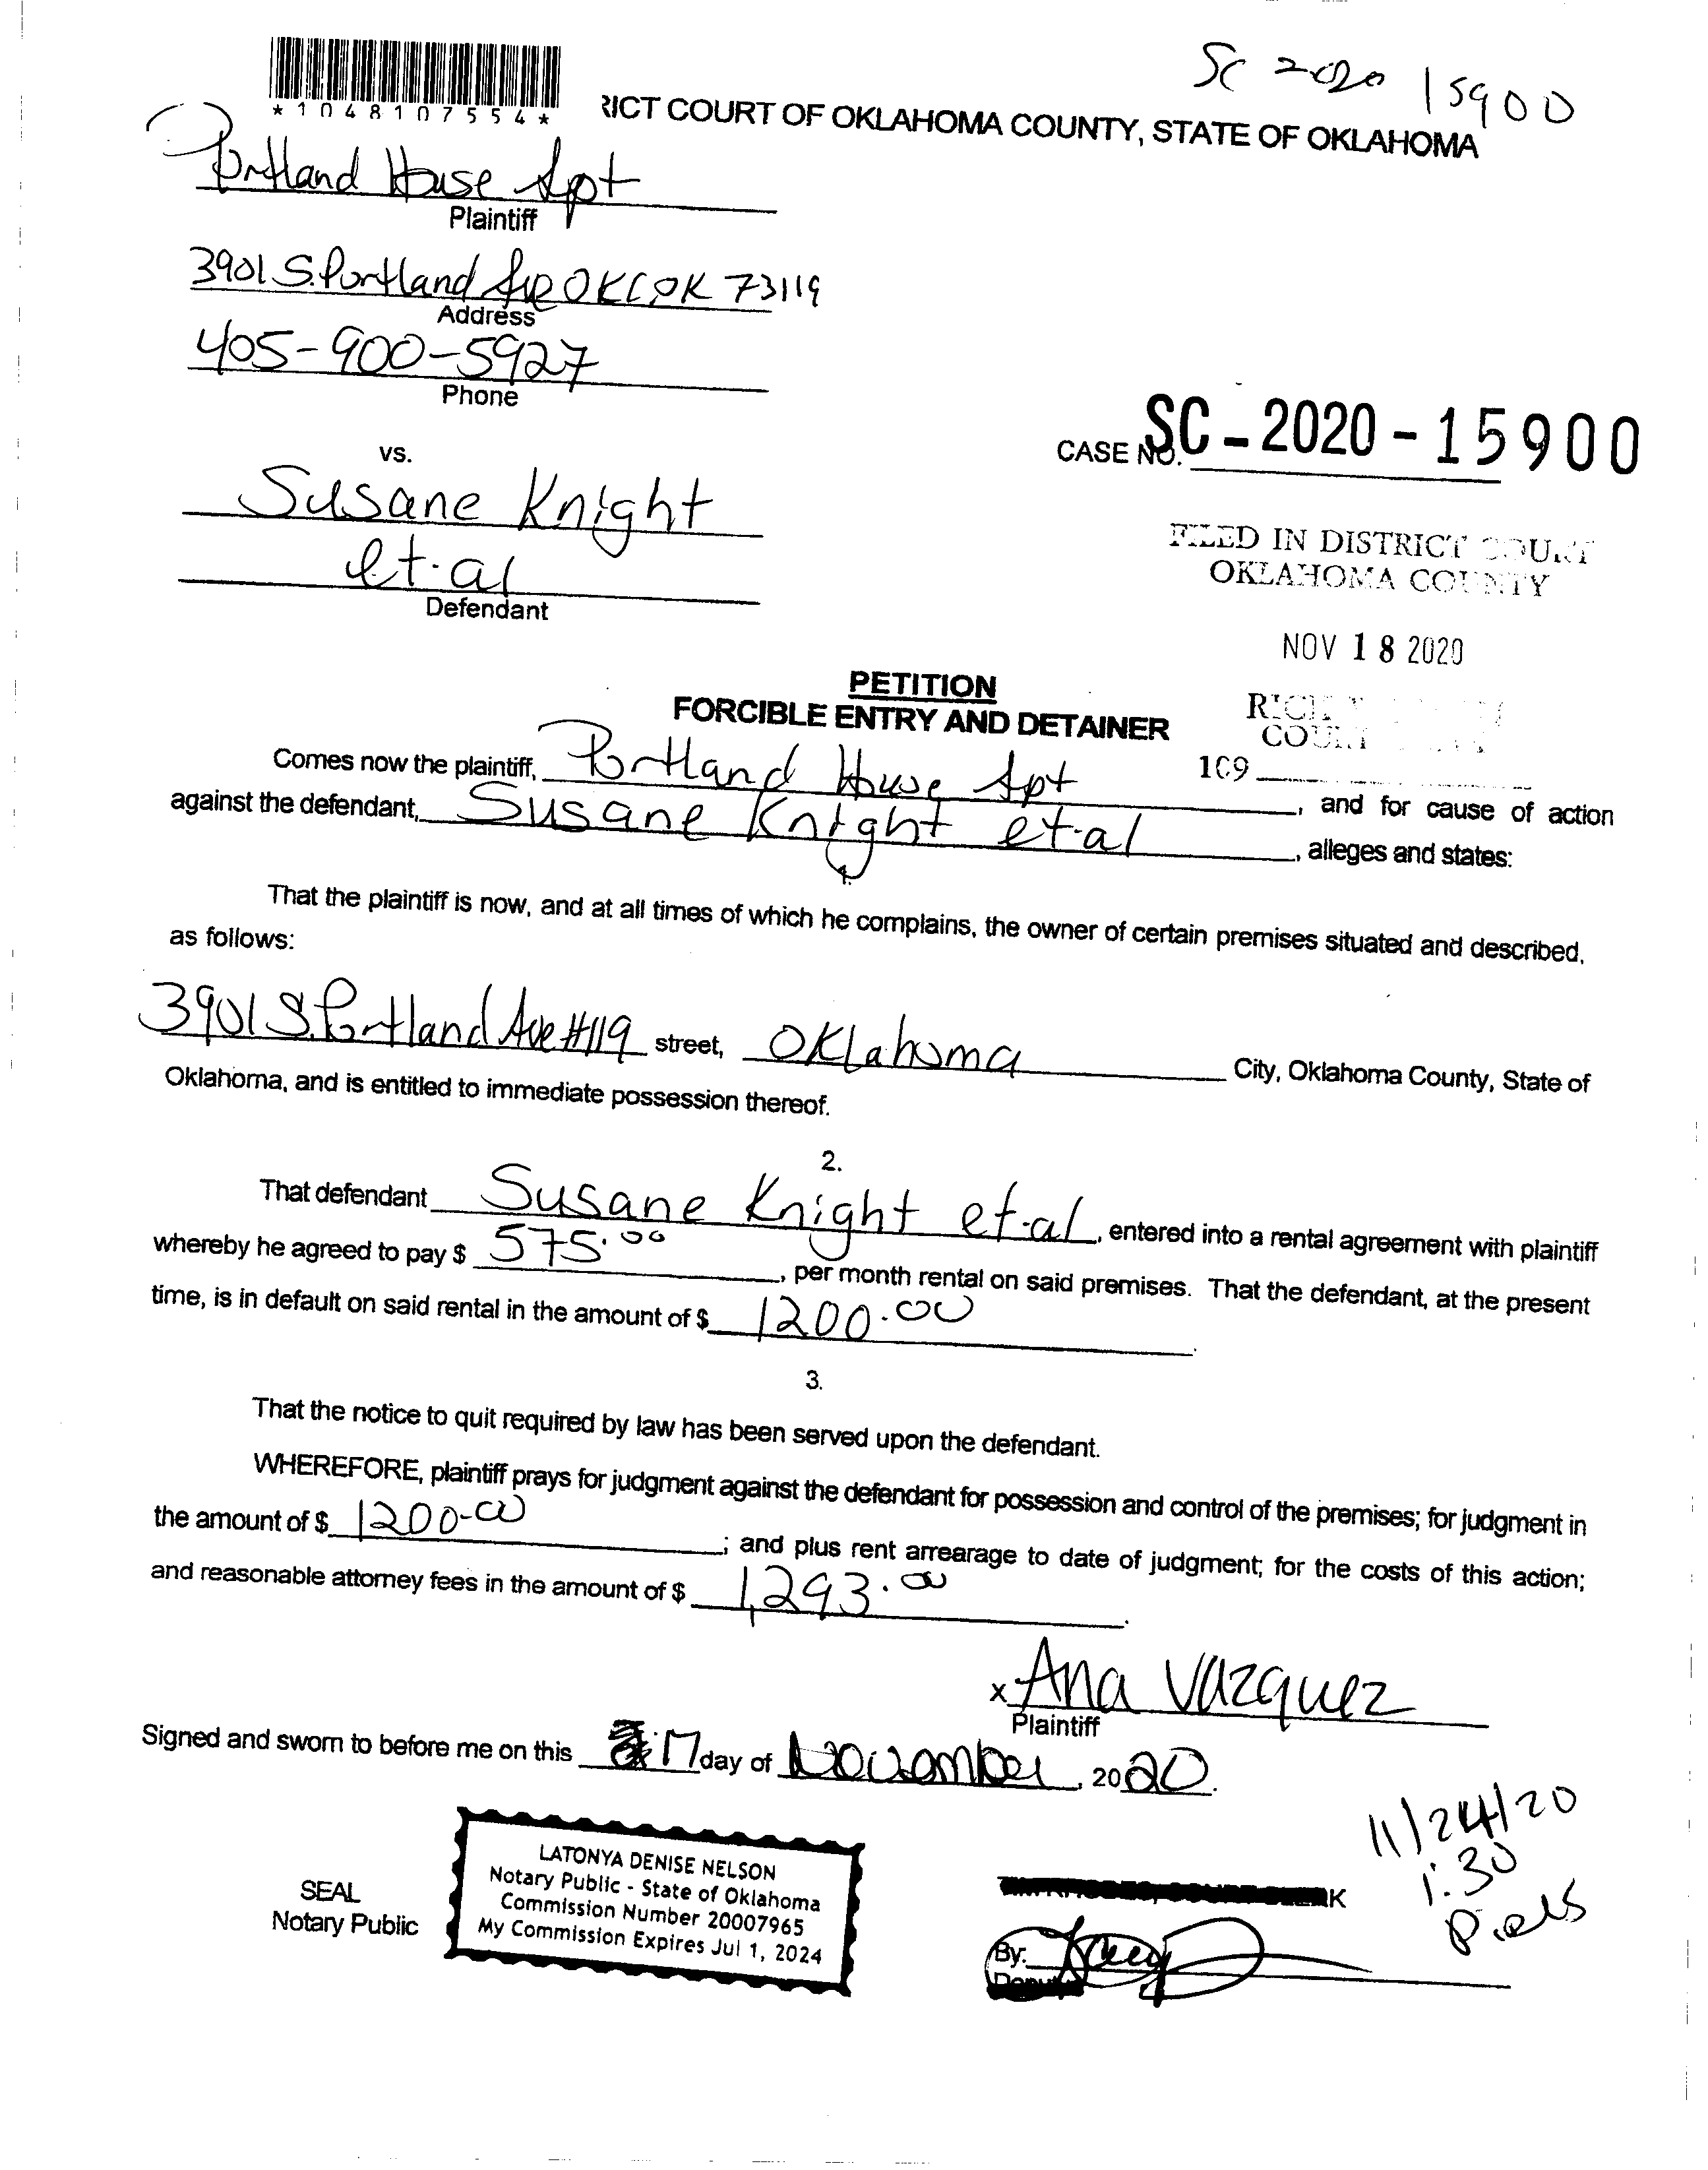 SC 2020 15900
*1048107554*
RICT COURT OF OKLAHOMA COUNTY, STATE OF OKLAHOMA
Portland House Apt
Plaintiff
3901 S. Portland Ave OKC OK 73119
Address
405-900-5927
Phone
vs.
CASE NO. SC-2020-15900
Susane Knight
et-al
Defendant
FILED IN DISTRICT COURT
OKLAHOMA COUNTY
NOV 18 2020
PETITION
FORCIBLE ENTRY AND DETAINER
COURT
109
Comes now the plaintiff, Portland House Apt, and for cause of action
against the defendant, Susane Knight et-al, alleges and states:
1.
That the plaintiff is now, and at all times of which he complains, the owner of certain premises situated and described,
as follows:
3901 S. Portland Ave #119 street, Oklahoma City, Oklahoma County, State of
Oklahoma, and is entitled to immediate possession thereof.
2.
That defendant Susane Knight et-al, entered into a rental agreement with plaintiff
whereby he agreed to pay $ 575.00, per month rental on said premises. That the defendant, at the present
time, is in default on said rental in the amount of $ 1200.00.
3.
That the notice to quit required by law has been served upon the defendant.
WHEREFORE, plaintiff prays for judgment against the defendant for possession and control of the premises; for judgment in
the amount of $ 1200-00; and plus rent arrearage to date of judgment; for the costs of this action;
and reasonable attorney fees in the amount of $ 1,293.00.
x Ana Vazquez
Plaintiff
Signed and sworn to before me on this 17 day of November, 2020.
11/24/20
1:30
SEAL
Notary Public
LATONYA DENISE NELSON
Notary Public - State of Oklahoma
Commission Number 20007965
My Commission Expires Jul 1, 2024
By:
Deputy